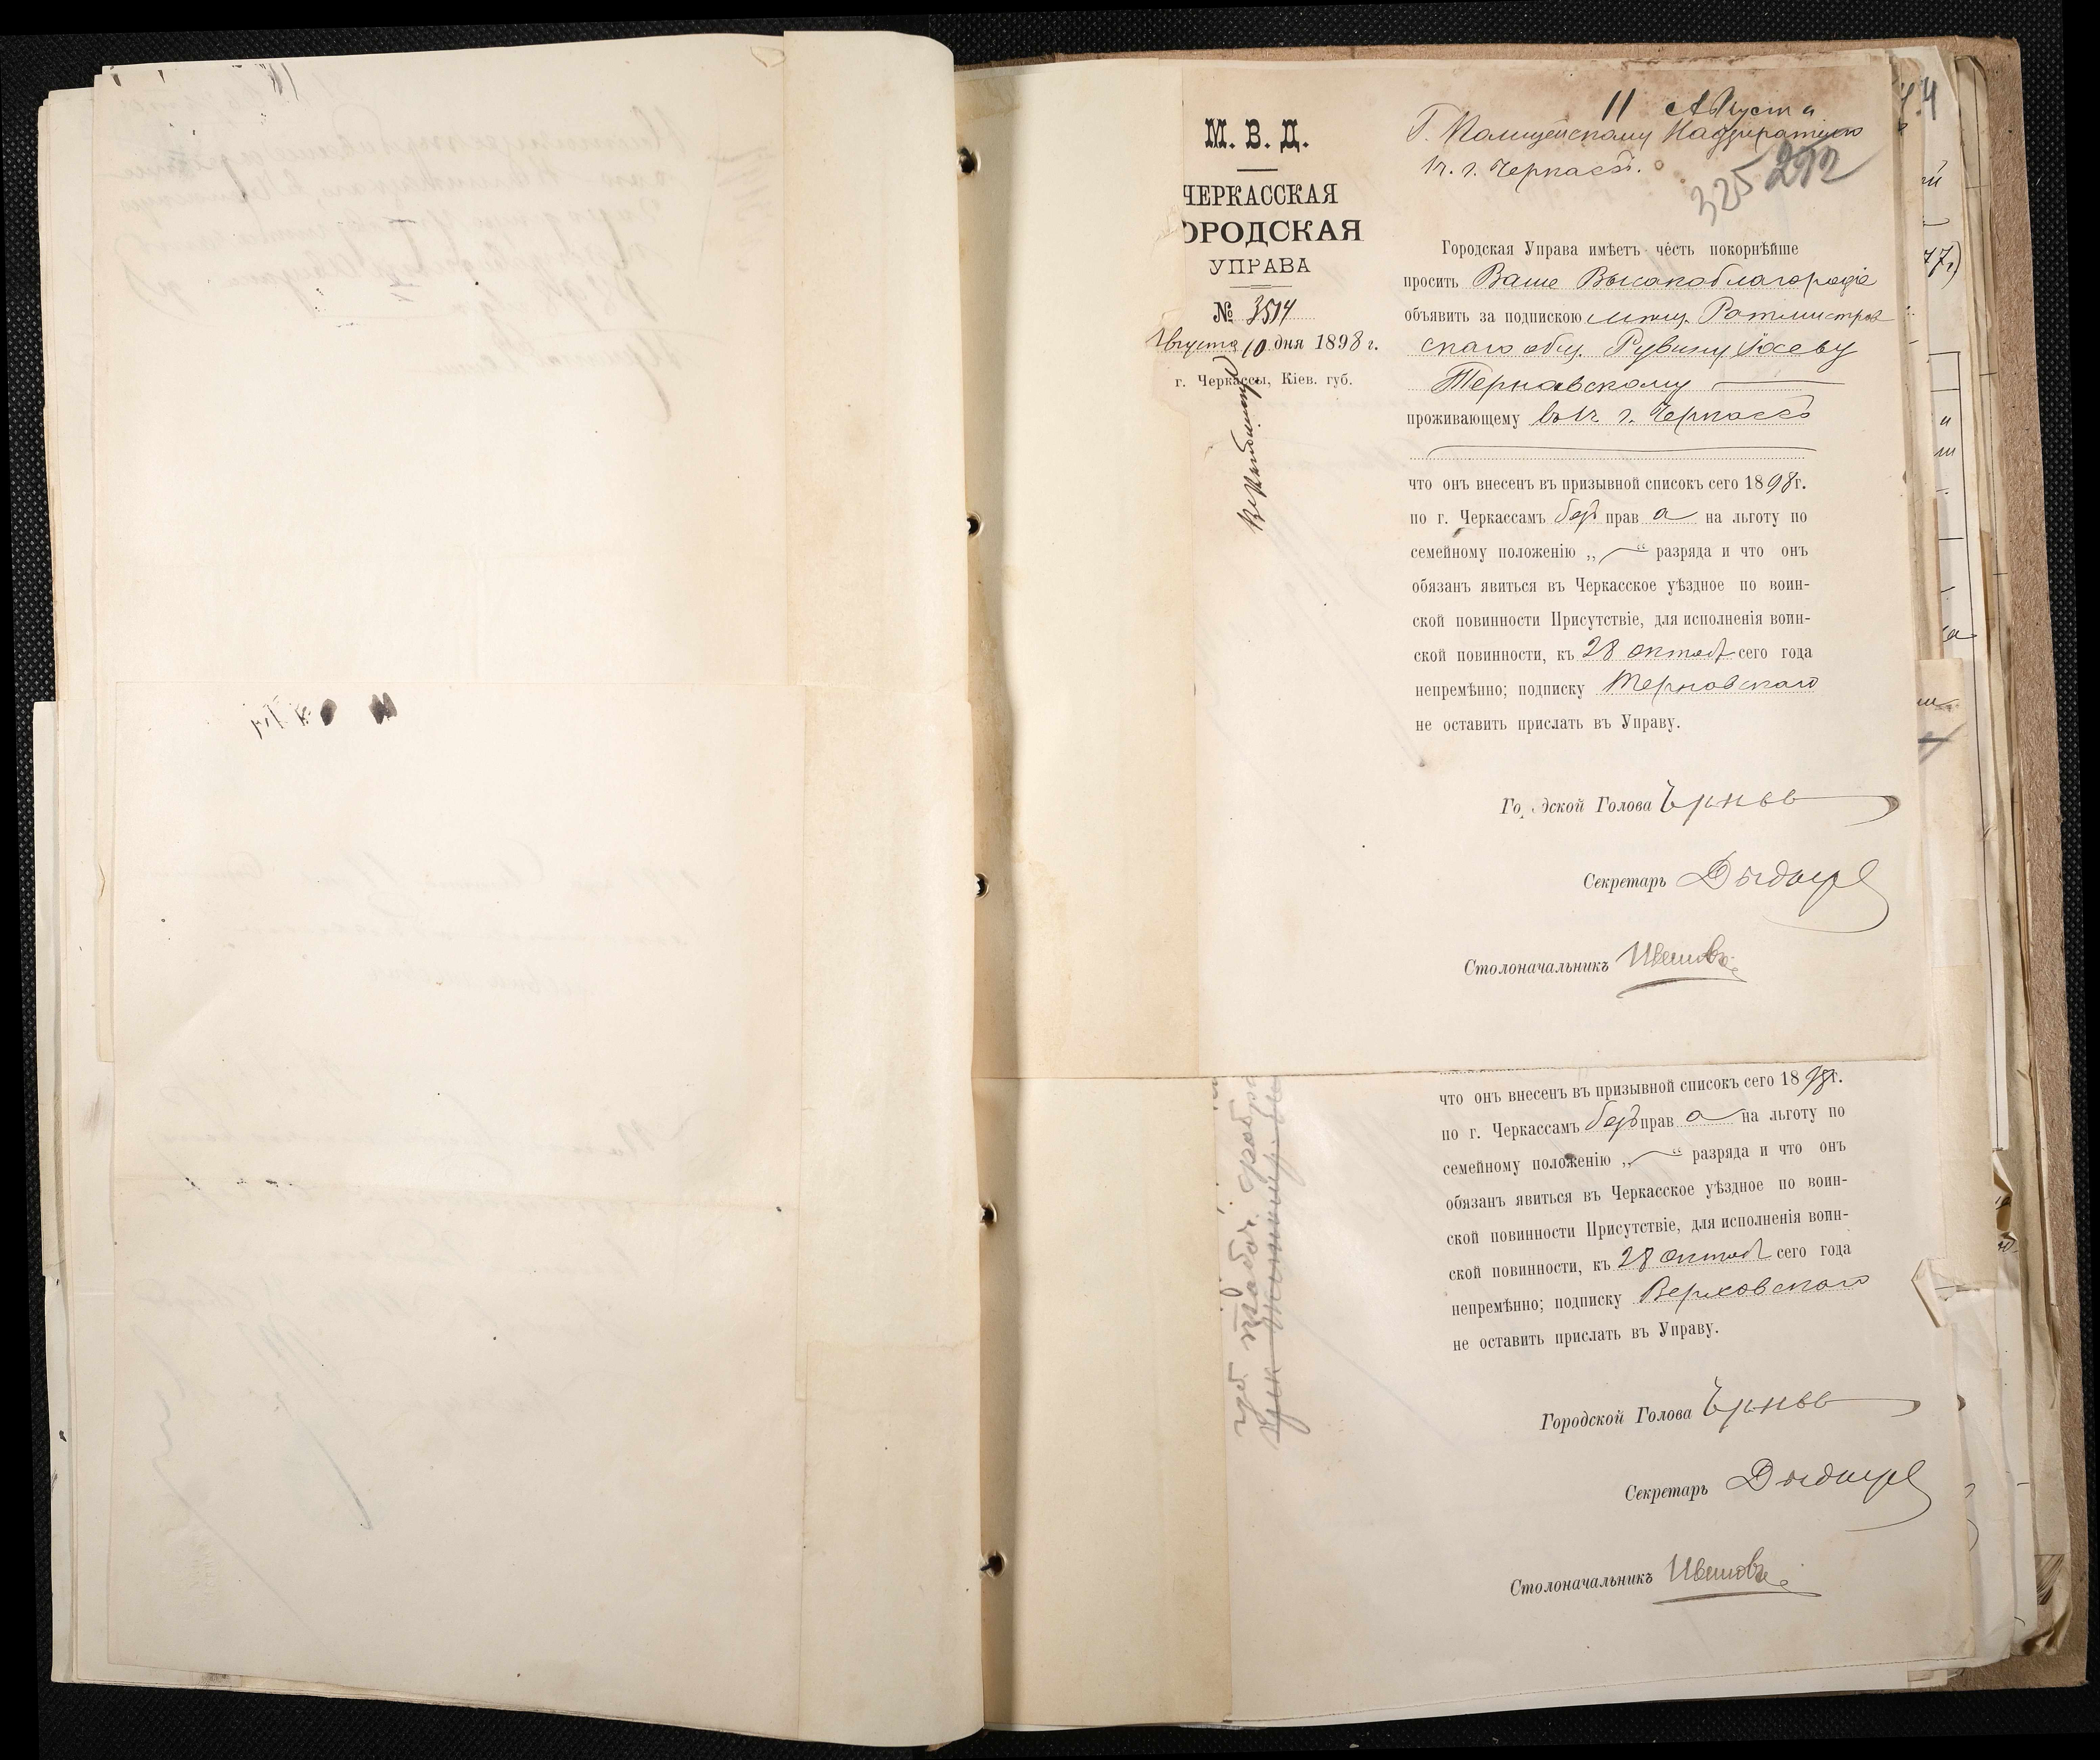 М. В. Д.
ЧЕРКАССКАЯ
ОРОДСКАЯ
УПРАВА
№ 3514
Августа 10 дня 1898 г.
г. Черкассы, Кіев. губ.
11 Августа
Г. Полицейскому Надзирателю
1 ч. г. Черкассъ.
325 292
Городская Управа имѣетъ честь покорнѣйше
просить Ваше Высокоблагородіе
объявить за подпискою мѣщ. Ротмистров
скаго общ. Рувину Іосеву
Терновскому
проживающему въ 1 ч. г. Черкассъ
что онъ внесенъ въ призывной списокъ сего 1898 г.
по г. Черкассамъ безъ прав а на льготу по
семейному положенію „ — “ разряда и что онъ
обязанъ явиться въ Черкасское уѣздное по воин-
ской повинности Присутствіе, для исполненія воин-
ской повинности, къ 28 октяб сего года
непремѣнно; подписку Терновскаго
не оставить прислать въ Управу.
Го дской Голова
Секретарь
Столоначальникъ
что онъ внесенъ въ призывной списокъ сего 1898 г.
по г. Черкассамъ безъ прав а на льготу по
семейному положенію „ — “ разряда и что онъ
обязанъ явиться въ Черкасское уѣздное по воин-
ской повинности Присутствіе, для исполненія воин-
ской повинности, къ 28 октяб сего года
непремѣнно; подписку Верховскаго
не оставить прислать въ Управу.
Городской Голова
Секретарь
Столоначальникъ